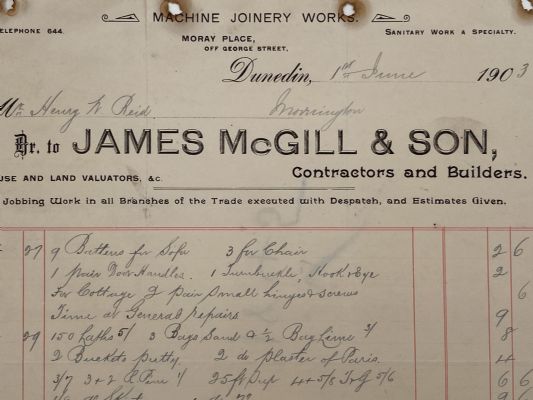 MACHINE JOINERY WORKS.
TELEPHONE 644.
MORAY PLACE,
OFF GEORGE STREET.
SANITARY WORK A SPECIALTY.
Dunedin, 1st June 1903
Mr Henry W Reid Mornington
Dr. to JAMES McGILL & SON,
USE AND LAND VALUATORS, &c.
Contractors and Builders.
Jobbing Work in all Branches of the Trade executed with Despatch, and Estimates Given.
27 9 Battens for Sofa 3 for Chair 2 6
1 pair Door Handles. 1 Turnbuckle, Hook & Eye 2
For Cottage 2 pair small hinges & screws 6
Time at General repairs 9
29 150 Laths 5/ 3 Bags Sand & ½ Bag Lime 3/ 8
2 Buckets putty. 2 do plaster of Paris. 4
3/7 3+2 R Pine 25 ft 4+5/8 T&G 5/6 6 6